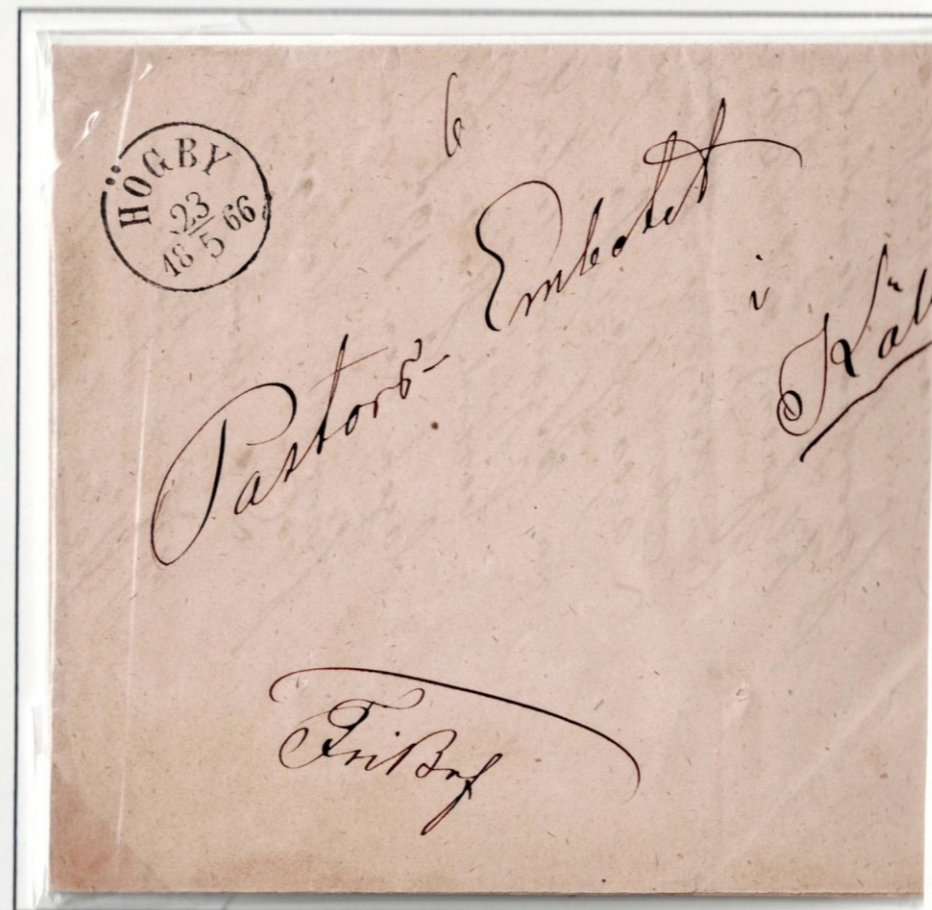 HÖGBY
23
18 5 66
6
Pastors-Embetet
i
Käl
FriBref